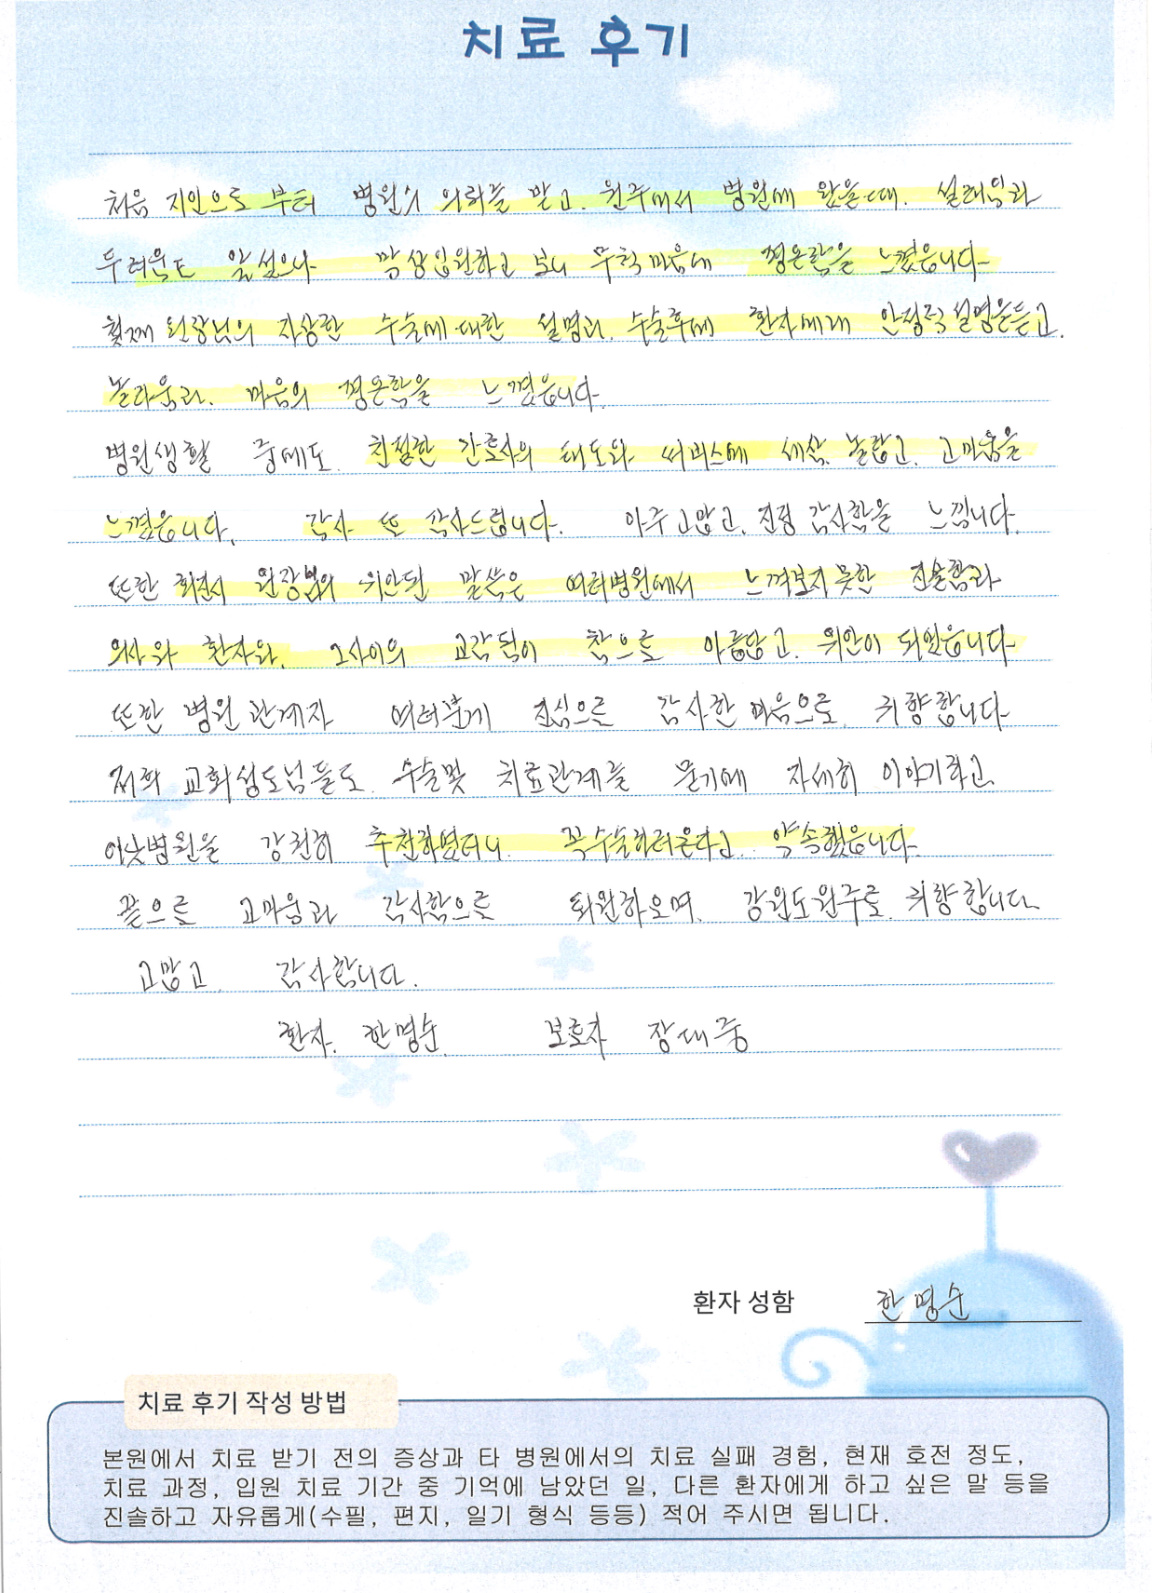 치료 후기
처음 지인으로 부터 병원의 의뢰를 받고. 원주에서 병원에 왔을때. 설레임과
두려움도 앞섰으나 막상입원하고 보니 무척 마음에 평온함을 느꼈읍니다
첫째 원장님의 자상한 수술에 대한 설명과. 수술후에 환자에게 안정적 설명을듣고.
놀라움과. 마음의 평온함을 느꼈읍니다.
병원생활 중에도. 친절한 간호사의 태도와 써비스에 세삼. 놀랍고. 고마움을
느꼈읍니다. 감사 또 감사드립니다. 아주 고맙고. 진정 감사함을 느낍니다.
또한 회진시 원장님의 위안된 말씀은 여러병원에서 느껴보지못한 진솔함과
의사와 환자와. 그사이의 교감됨이 참으로 아름답고. 위안이 되었읍니다
또한 병원 관계자 여러분께 진심으로 감사한 마음으로. 귀향합니다
저희 교회성도님들도. 수술및 치료관계를 묻기에 자세히 이야기하고.
이낫병원을 강력히 추천하였더니. 꼭수술하러온다고. 약속했읍니다.
끝으로 고마움과 감사함으로 퇴원하오며. 강원도원주로. 귀향합니다
고맙고 감사합니다.
환자. 한명순. 보호자 장대중
환자 성함 한명순
치료 후기 작성 방법
본원에서 치료 받기 전의 증상과 타 병원에서의 치료 실패 경험, 현재 호전 정도,
치료 과정, 입원 치료 기간 중 기억에 남았던 일, 다른 환자에게 하고 싶은 말 등을
진솔하고 자유롭게(수필, 편지, 일기 형식 등등) 적어 주시면 됩니다.